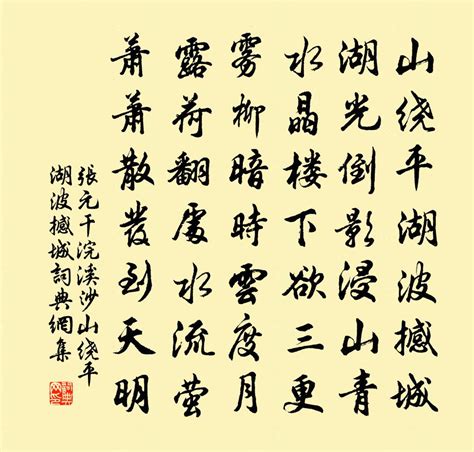 山绕平湖波撼城
湖光倒影浸山青
水晶楼下欲三更
雾柳暗時雲度月
露荷翻處水流萤
蕭蕭散發到天明
張元干浣溪沙山绕平
湖波撼城詞典網集